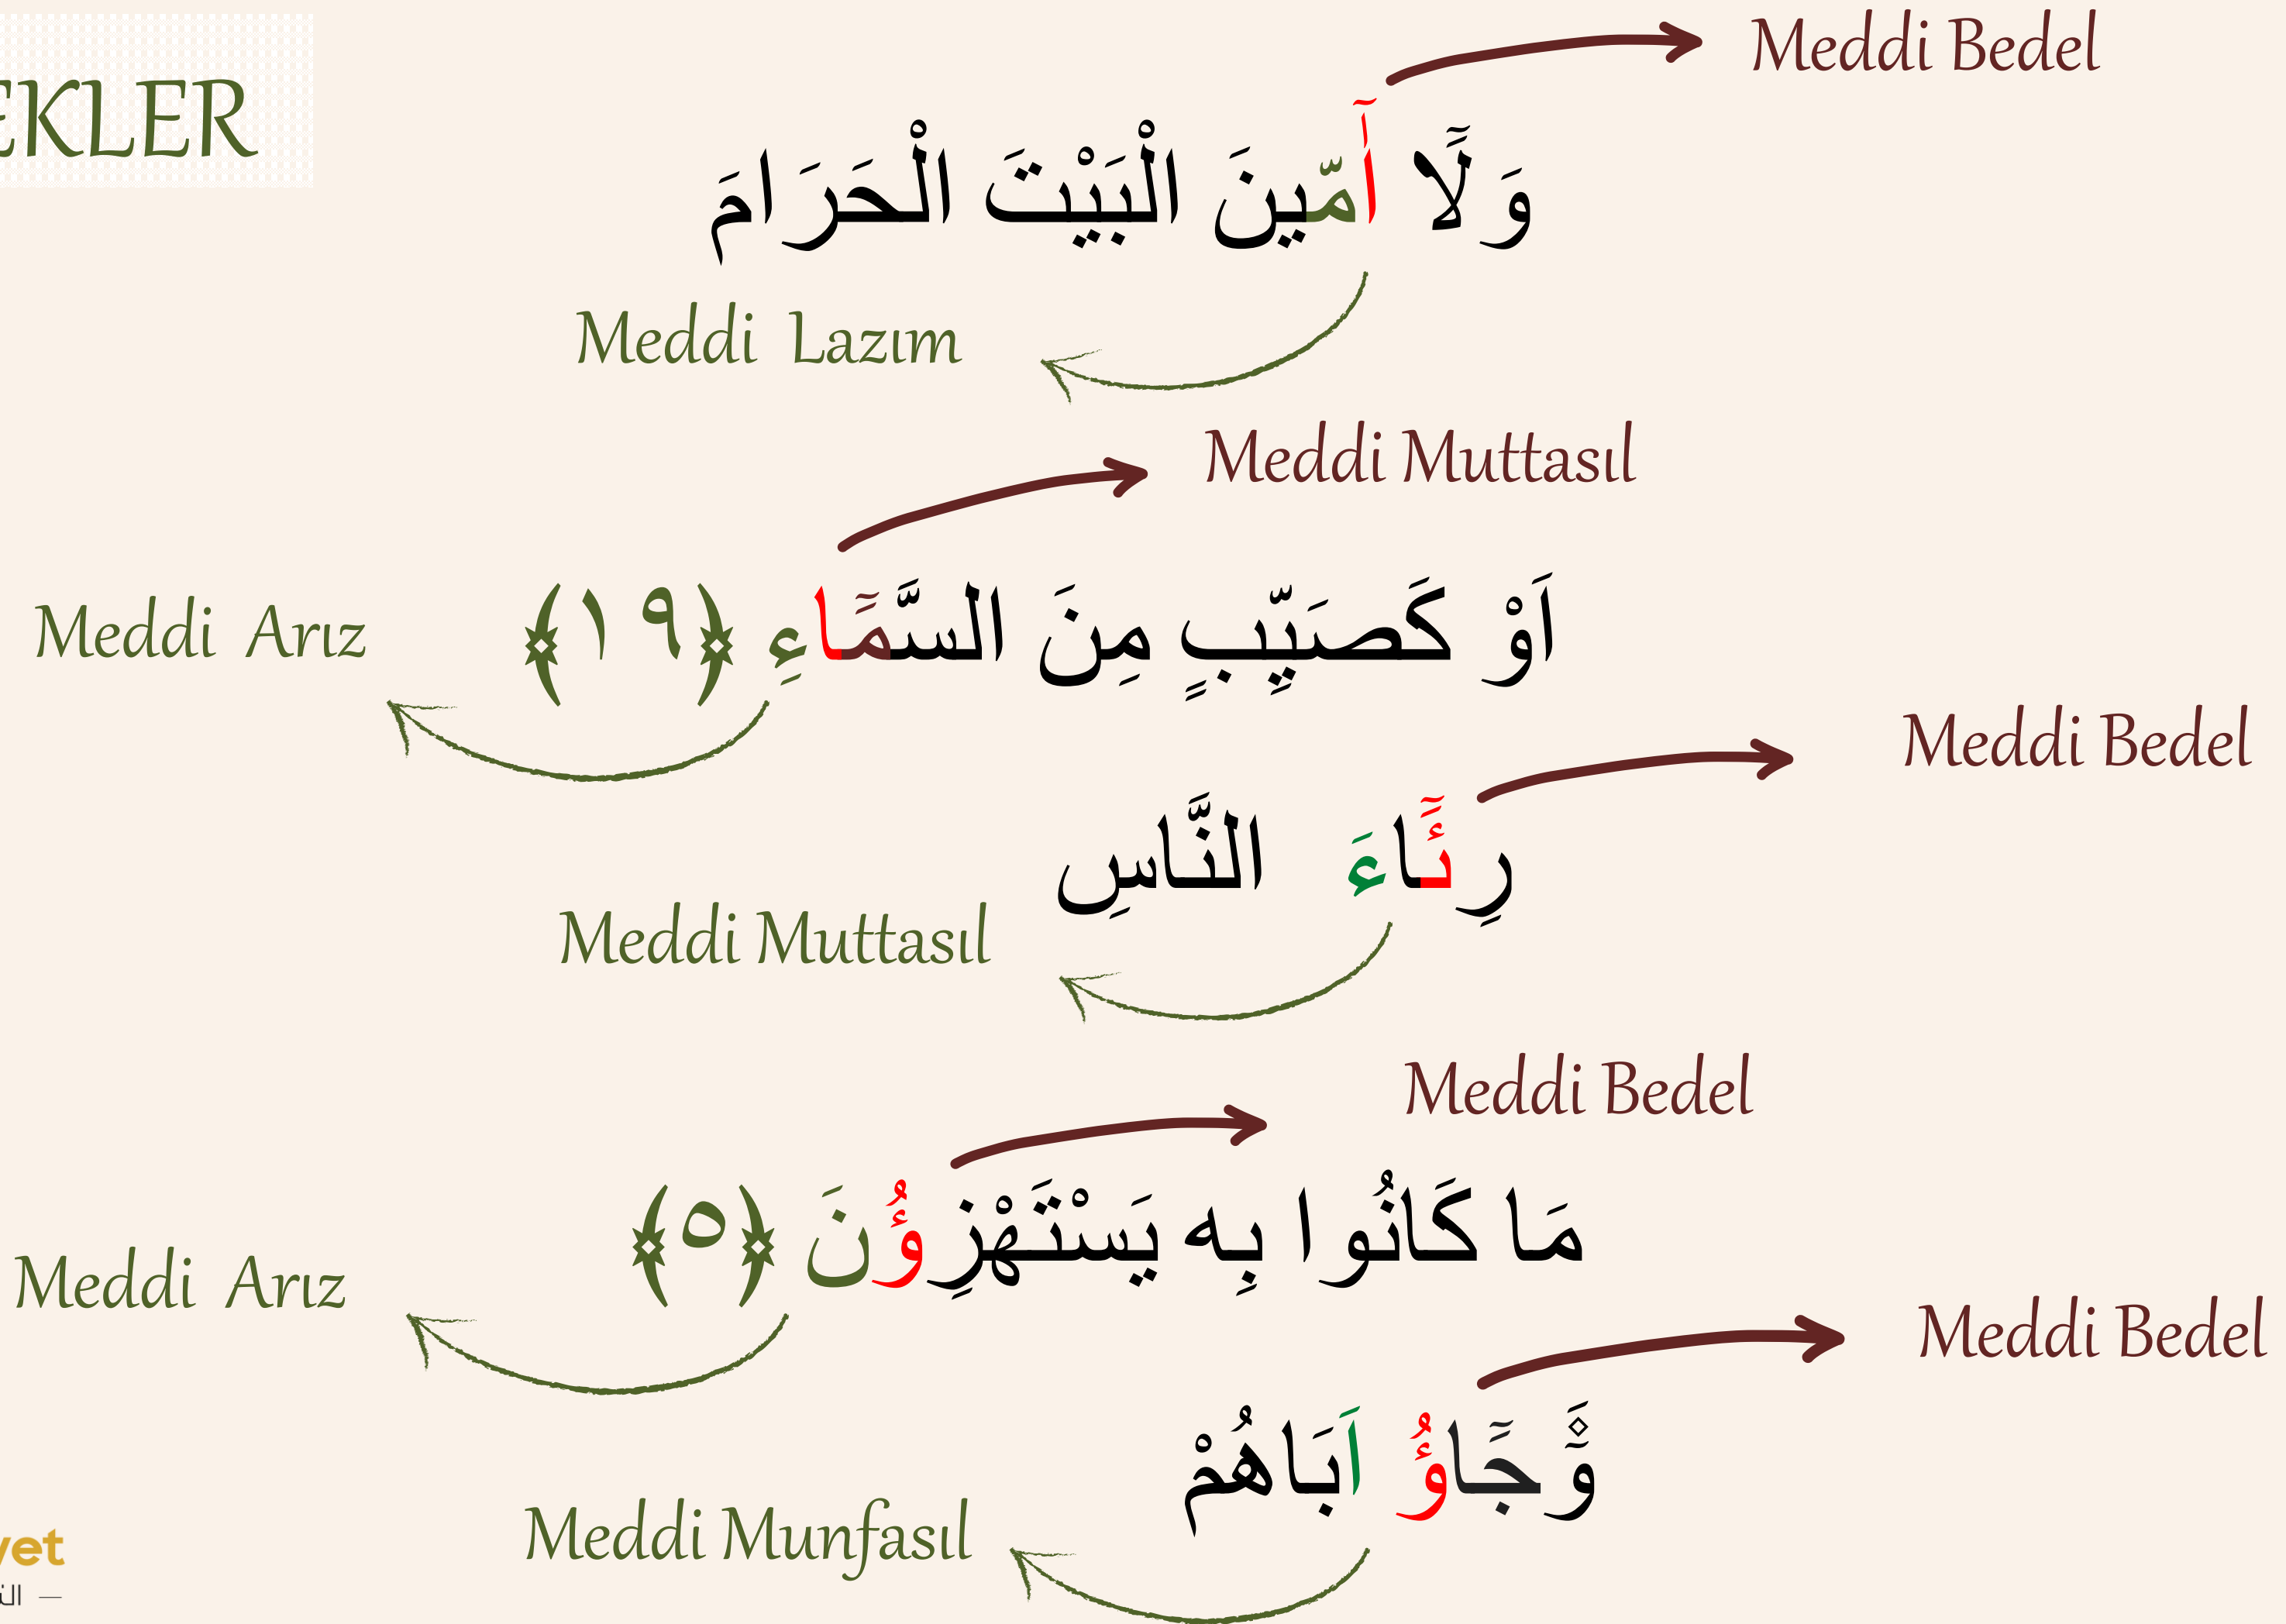 EKLER
Meddi Bedel
وَلَٓا أَٓمّ۪ينَ الْبَيْتَ الْحَرَامَ
Meddi Lazım
Meddi Muttasıl
اَوْ كَصَيِّبٍ مِنَ السَّمَٓاءِ ﴿١٩﴾
Meddi Arız
Meddi Bedel
رِئَٓاءَ النَّاسِ
Meddi Muttasıl
Meddi Bedel
مَا كَانُوا بِه يَسْتَهْزِؤُنَ ﴿٥﴾
Meddi Arız
Meddi Bedel
وَجَٓاؤُ اَبَاهُمْ
Meddi Munfasıl
yet